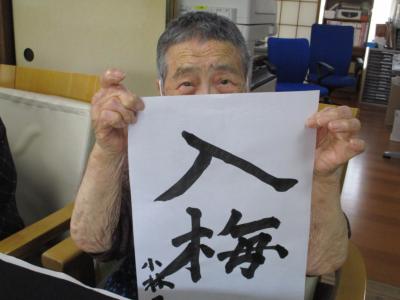 入梅
小林